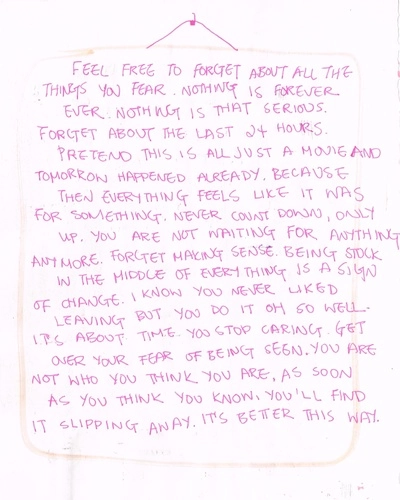 FEEL FREE TO FORGET ABOUT ALL THE
THINGS YOU FEAR. NOTHING IS FOREVER.
EVER. NOTHING IS THAT SERIOUS.
FORGET ABOUT THE LAST 24 HOURS.
PRETEND THIS IS ALL JUST A MOVIE AND
TOMORROW HAPPENED ALREADY. BECAUSE
THEN EVERYTHING FEELS LIKE IT WAS
FOR SOMETHING. NEVER COUNT DOWN, ONLY
UP. YOU ARE NOT WAITING FOR ANYTHING
ANYMORE. FORGET MAKING SENSE. BEING STOCK
IN THE MIDDLE OF EVERYTHING IS A SIGN
OF CHANGE. I KNOW YOU NEVER LIKED
LEAVING BUT YOU DO IT OH SO WELL.
IT'S ABOUT TIME. YOU STOP CARING. GET
OVER YOUR FEAR OF BEING SEEN. YOU ARE
NOT WHO YOU THINK YOU ARE, AS SOON
AS YOU THINK YOU KNOW, YOU'LL FIND
IT SLIPPING AWAY. IT'S BETTER THIS WAY.